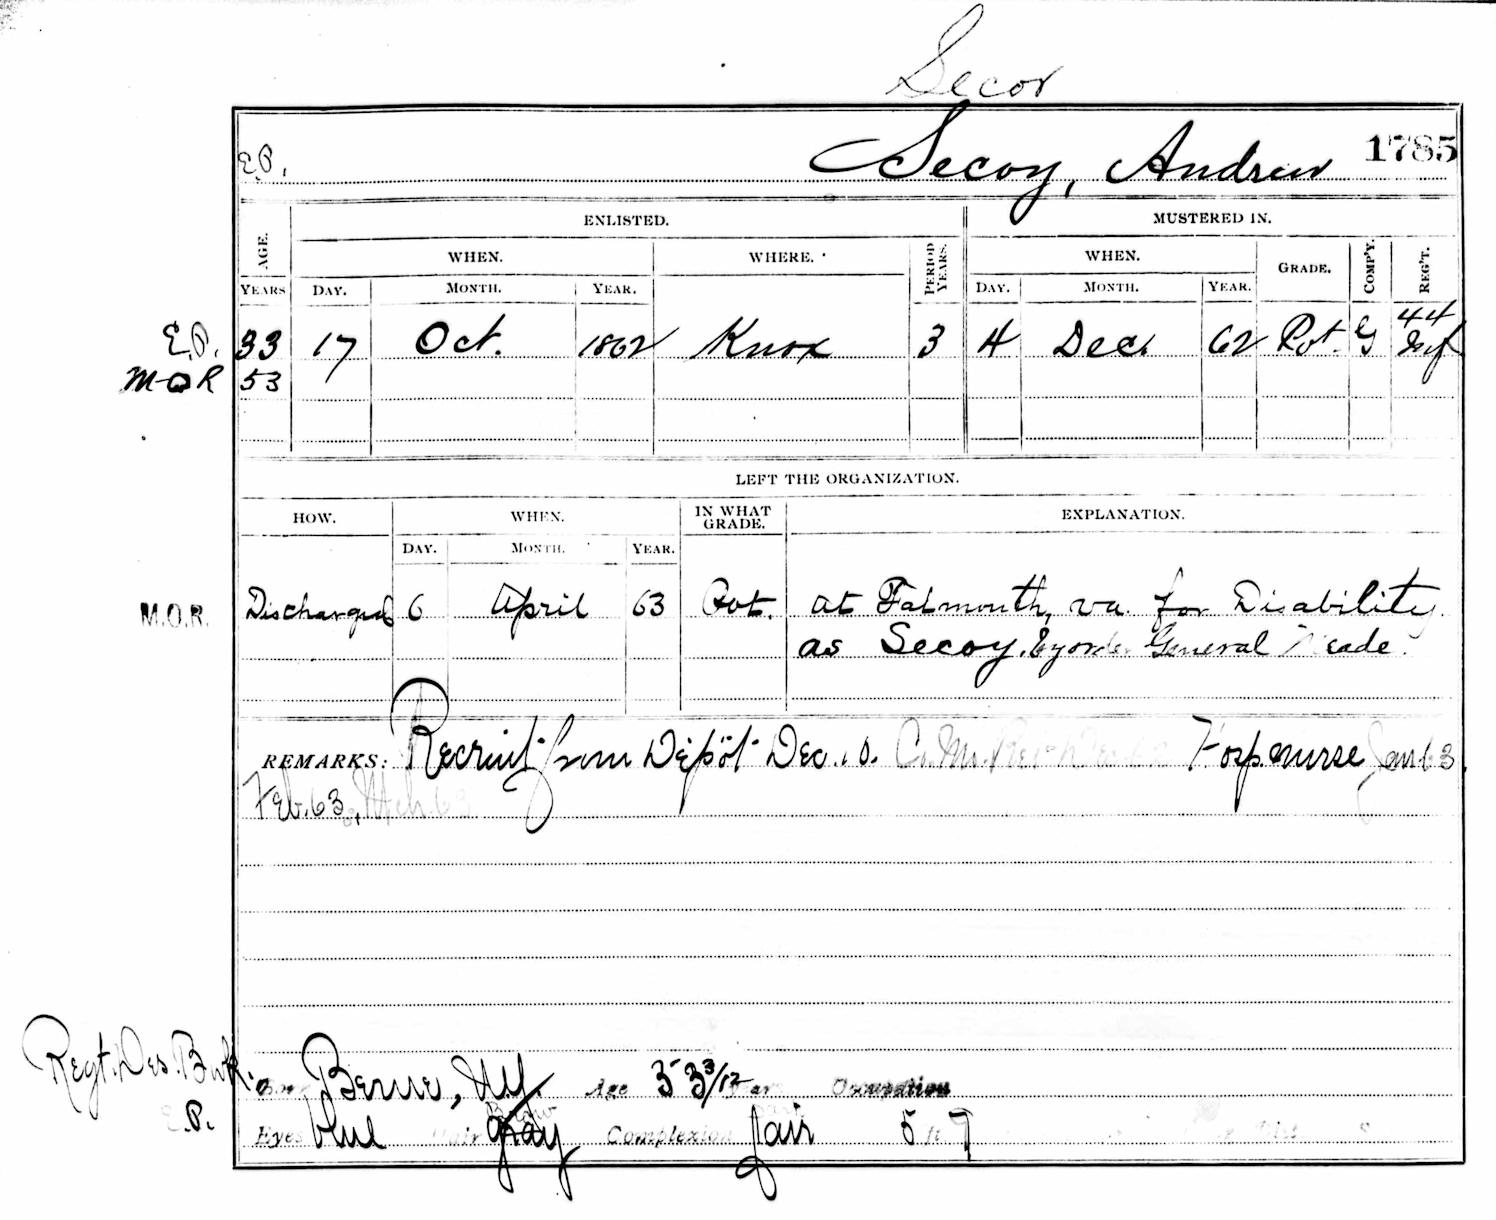 Secor
E.P. Secoy, Andrew 1785
ENLISTED. MUSTERED IN.
AGE. WHEN. WHERE. PERIOD YEARS. WHEN. GRADE. COMP'Y. REG'T.
YEARS DAY. MONTH. YEAR. DAY. MONTH. YEAR.
E.P. 33 17 Oct. 1862 Knox 3 4 Dec. 62 Pvt. G 44 Inf
M-O R 53
LEFT THE ORGANIZATION.
HOW. WHEN. IN WHAT GRADE. EXPLANATION.
DAY. MONTH. YEAR.
M.O.R. Discharged 6 April 63 Pvt. at Falmouth, va. for Disability
as Secoy. by order General Meade.
REMARKS: Recruit from Depot Dec. 10. Hosp. nurse Jan 63.
Feb. 63, Mch. 63
Regt. Des. Book. Born Berne, N.Y. Age Occupation
E.P. Eyes blue Hair gray Complexion fair 5 ft 7